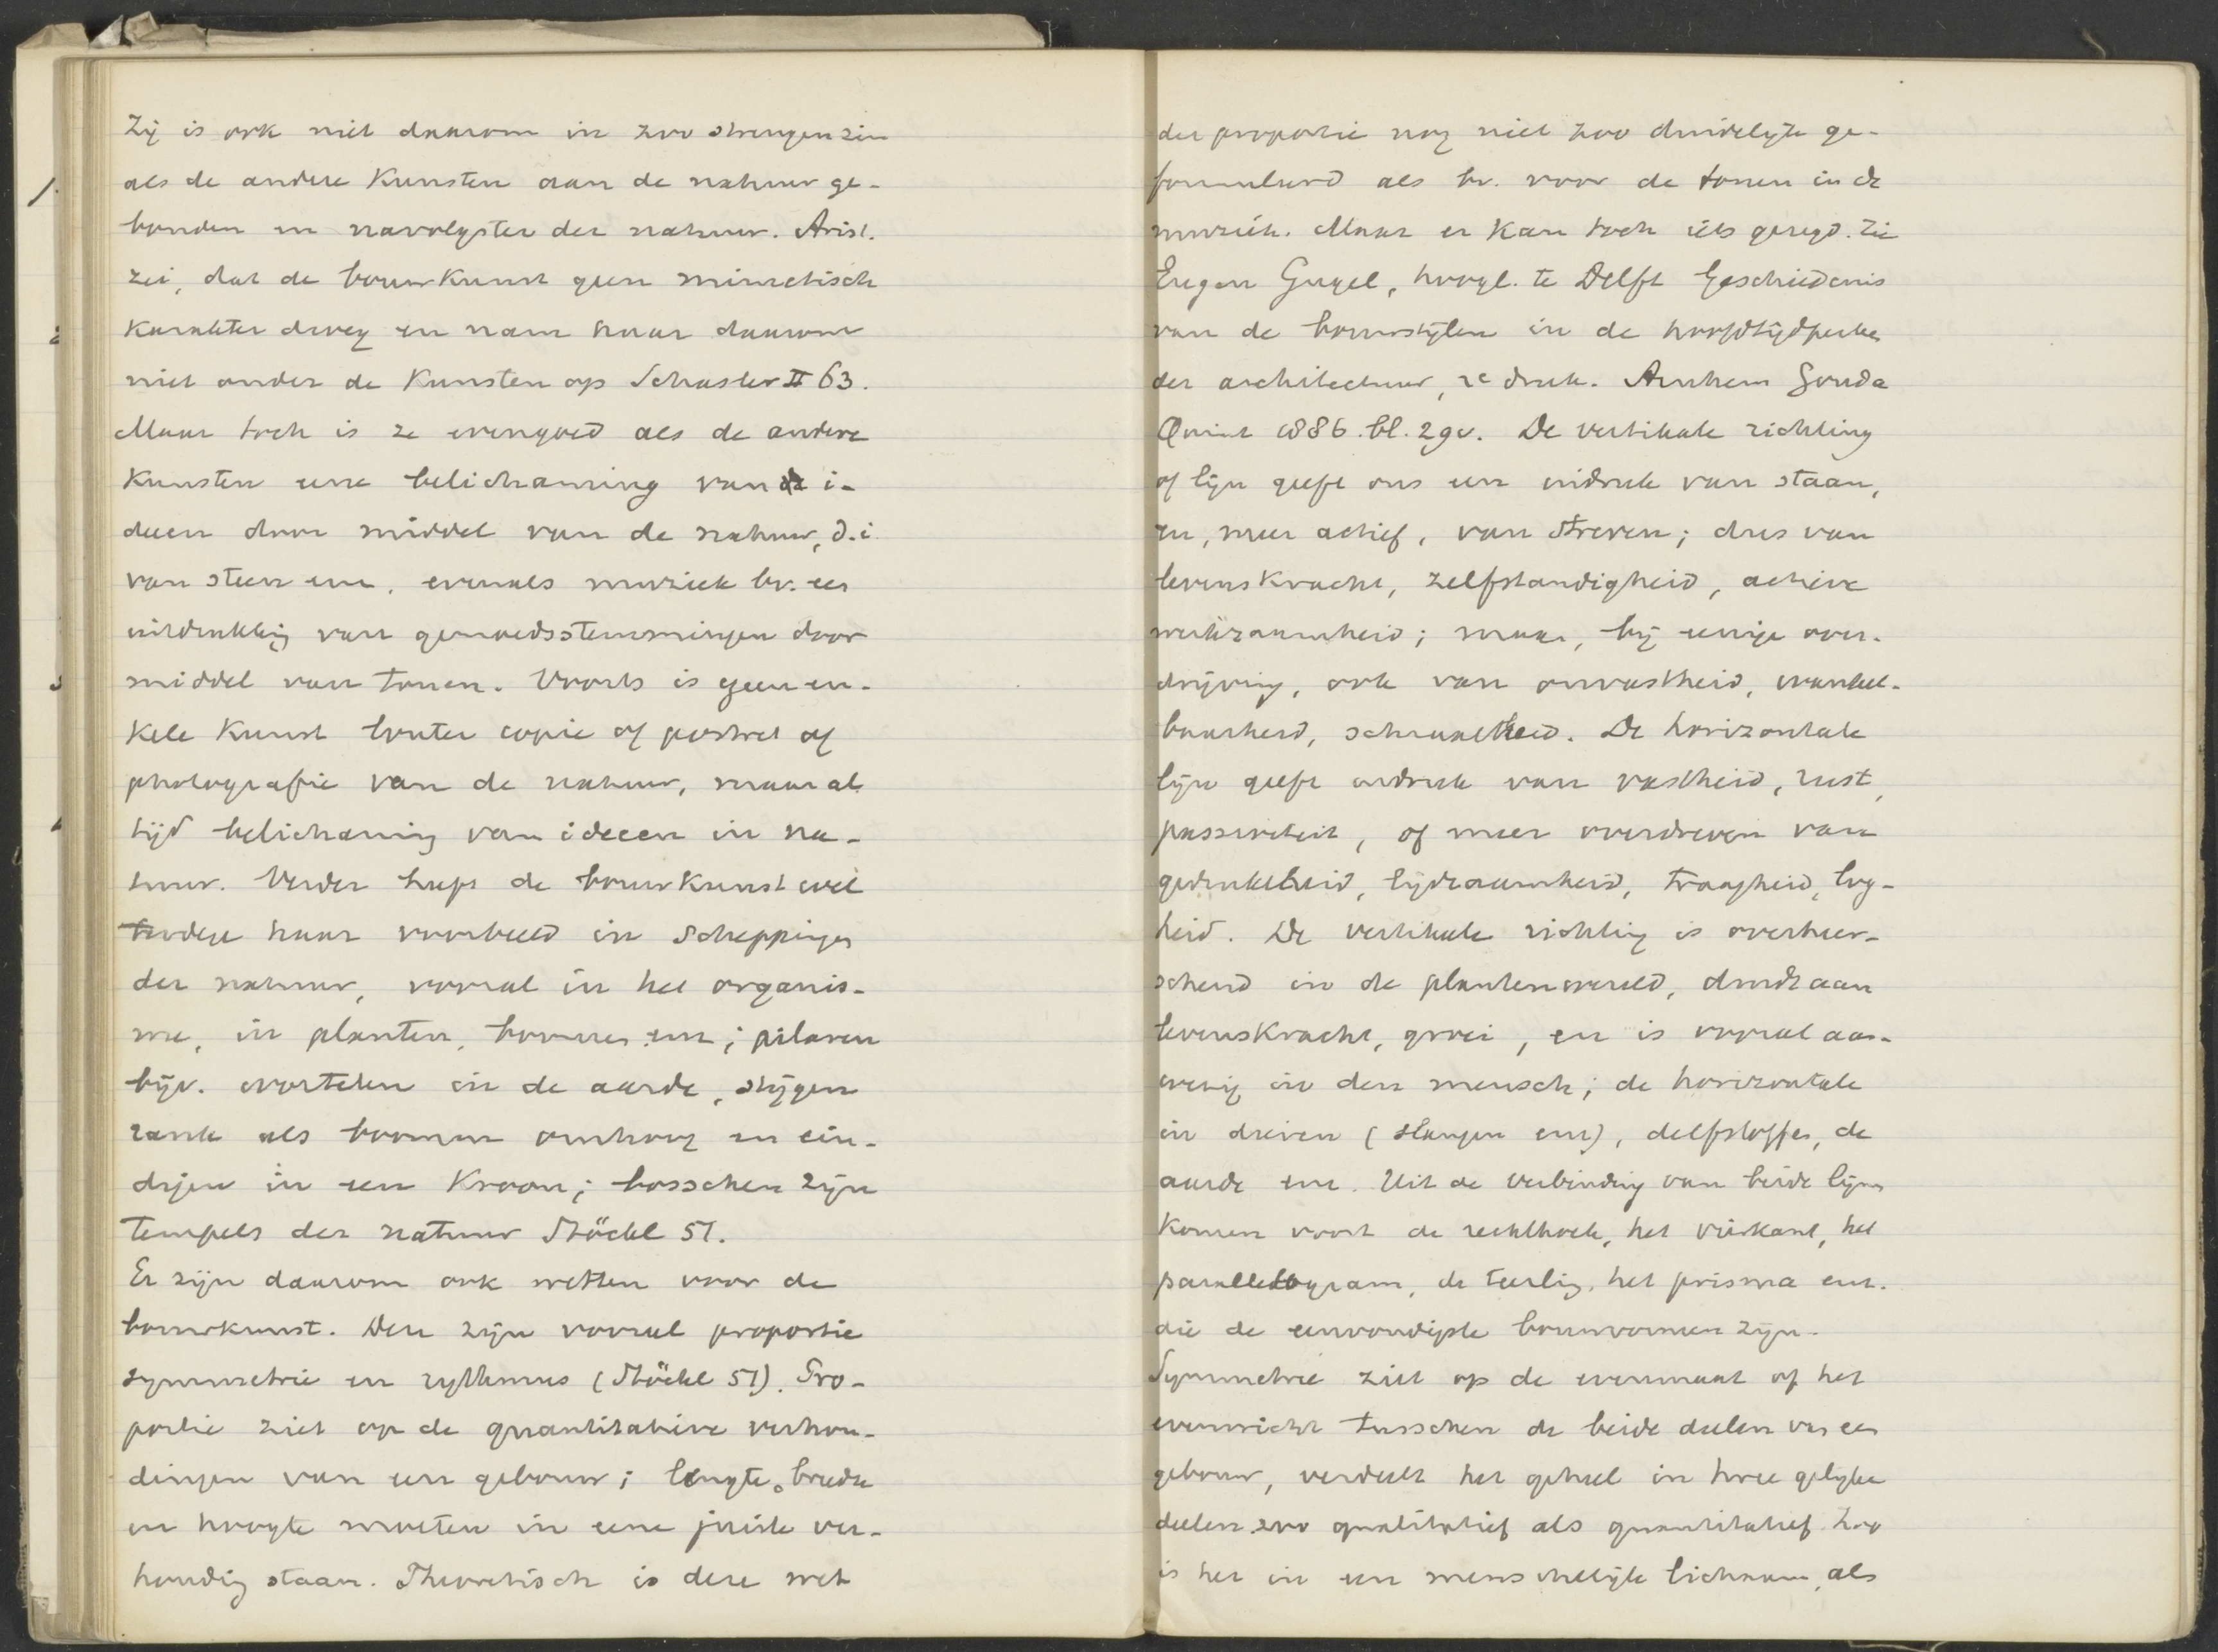 Zij is ook niet daarom in zoo strengen zin
als de andere Kunsten aan de natuur ge-
bonden en navolgster der natuur. Arist.
zei, dat de bouwkunst geen mimetisch
karakter droeg en nam haar daarom
niet onder de Kunsten op Schasler II 63.
Maar toch is ze evengoed als de andere
Kunsten eene belichaming van de i-
deeen door middel van de natuur, d.i.
van steen enz. evenals muziek bv. een
uitdrukking van gemoedsstemmingen door
middel van tonen. Voorts is geen en-
kele Kunst louter copie of portret of
photografie van de natuur, maar al-
tijd belichaming van ideeen in na-
tuur. Verder heeft de bouwkunst wel
haar voorbeeld in scheppingen
der natuur, vooral in het organis-
me, in planten, boomen enz; pilaren
bijv. wortelen in de aarde, stijgen
rank als boomen omhoog en ein-
digen in een Kroon; bosschen zijn
tempels der natuur Stöckl 51.
Er zijn daarom ook wetten voor de
bouwkunst. Deze zijn vooral proportie
symmetrie en rythmus (Stöckl 51). Pro-
portie ziet op de quantitatieve verhou-
dingen van een gebouw; lengte, breedte
en hoogte moeten in eene juiste ver-
houding staan. Theoretisch is deze wet
der proportie nog niet zoo duidelijk ge-
formuleerd als bv. voor de tonen in de
muziek. Maar er kan toch iets gezegd. Zie
Eugen Gugel, hoogl. te Delft Geschiedenis
van de bouwstijlen in de hoofdtijdperken
der architectuur, 2e druk. Arnhem Gouda
Quint 1886. bl. 2 gv. De vertikale richting
of lijn geeft ons een indruk van staan,
en, meer actief, van streven; dus van
levenskracht, zelfstandigheid, actieve
werkzaamheid; maar, bij eenige over-
drijving, ook van onvastheid, wankel-
baarheid, schraalheid. De horizontale
lijn geeft indruk van vastheid, rust,
passiviteit, of meer overdreven van
gedruktheid, lijdzaamheid, traagheid, log-
heid. De vertikale richting is overheer-
schend in de plantenwereld, duidt aan
levenskracht, groei, en is vooral aan-
wezig in den mensch; de horizontale
in dieren (slangen enz), delfstoffen, de
aarde enz. Uit de verbinding van beide lijnen
komen voort de rechthoek, het vierkant, het
parallellogram, de teerling, het prisma enz.
die de eenvoudigste bouwvormen zijn.
Symmetrie ziet op de evenmaat of het
evenwicht tusschen de beide deelen van een
gebouw, verdeelt het geheel in twee gelijke
deelen zoo qualitatief als quantitatief. Zoo
is het in een menschelijk lichaam, als